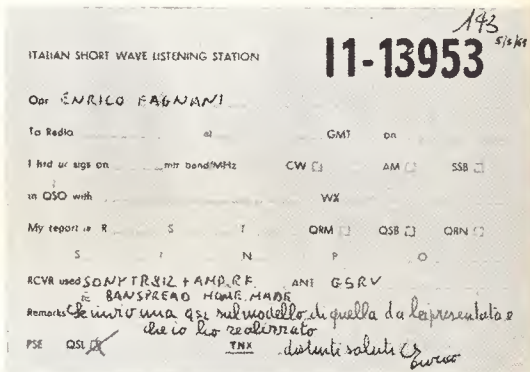 193
5/5/69
ITALIAN SHORT WAVE LISTENING STATION
I1-13953
Opr ENRICO FAGNANI
To Radio at GMT on
I hrd ur sigs on mtr band/MHz CW AM SSB
in QSO with WX
My report is R S T QRM QSB QRN
S I N P O
RCVR used SONY TR812 + AMP.RF. ANT G5RV
E BANSPREAD HOME MADE
Remarks Le invio una qsl sul modello di quella da lei presentata e
che io ho realizzato
PSE QSL TNX distinti saluti
Enrico